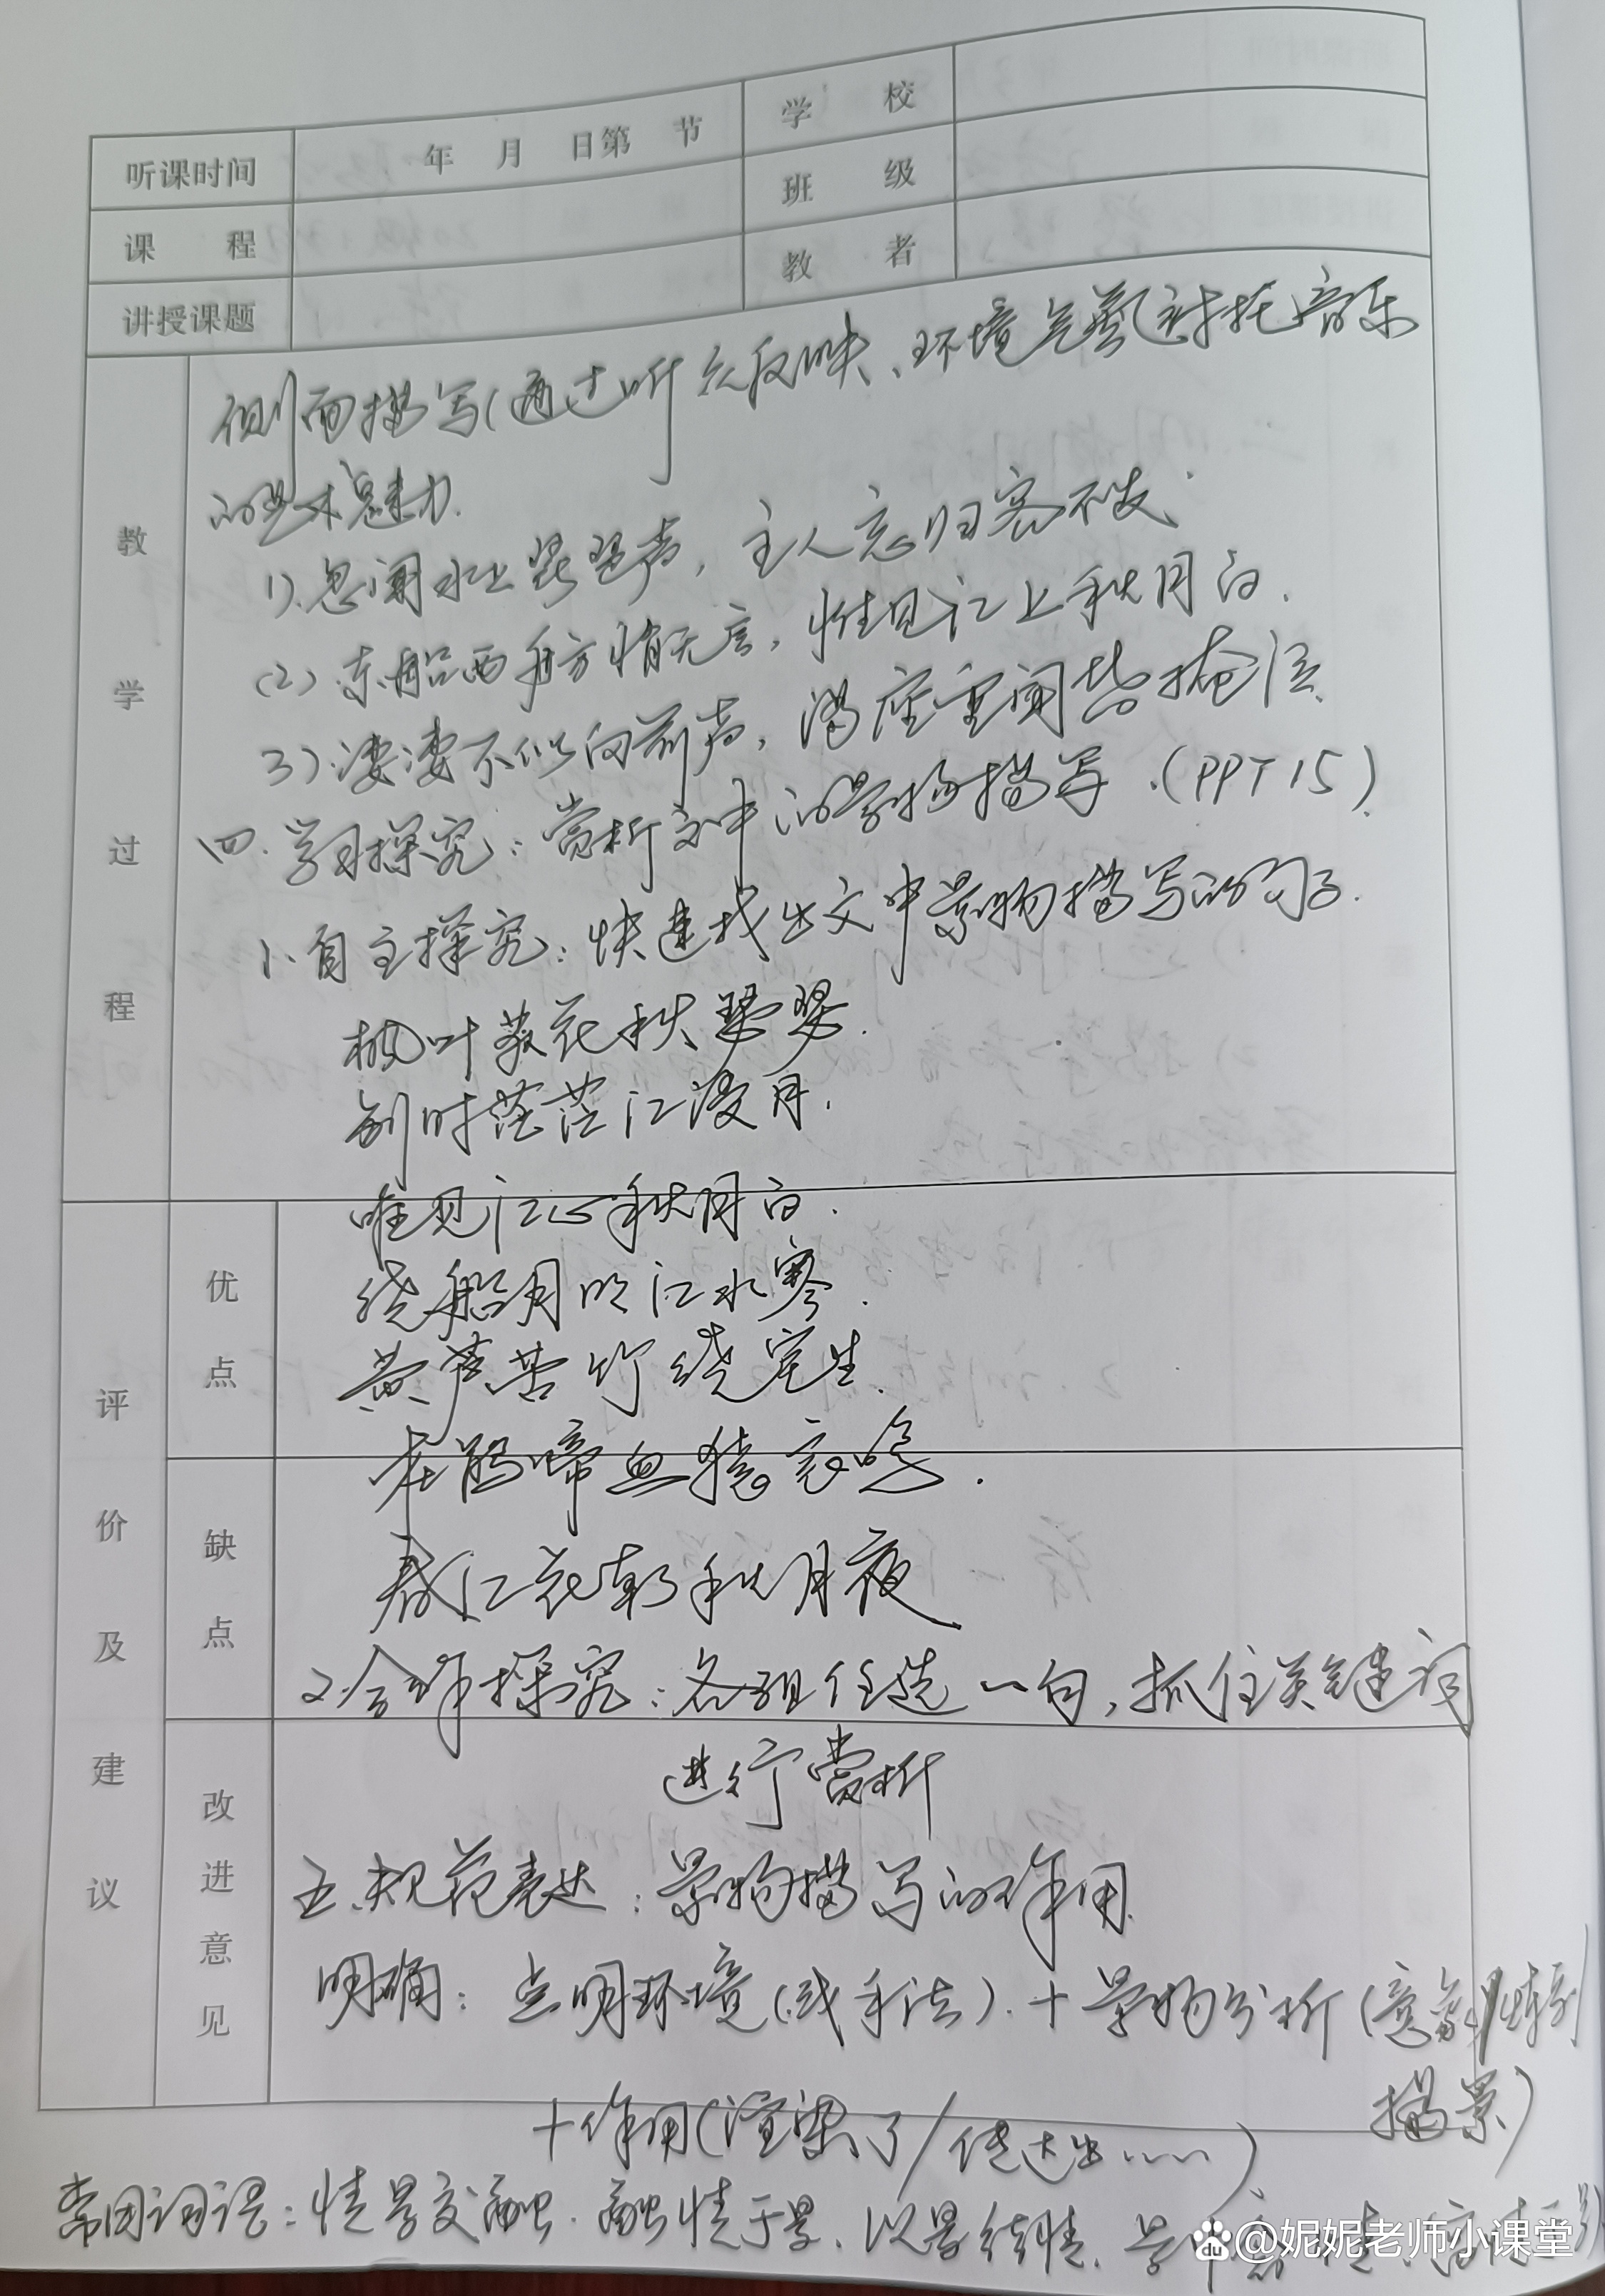 听课时间 年 月 日第 节 学 校
课 程 班 级
讲授课题 教 者
教学过程
侧面描写(通过听众反映、环境气氛衬托音乐
的艺术魅力.
1).忽闻水上琵琶声,主人忘归客不发.
(2).东船西舫悄无言,惟见江上秋月白.
3).凄凄不似向前声,满座重闻皆掩泣.
四.学习探究:赏析文中的景物描写.(PPT15)
1、自主探究:快速找出文中景物描写的句子.
枫叶荻花秋瑟瑟.
别时茫茫江浸月.
唯见江心秋月白.
绕船月明江水寒.
黄芦苦竹绕宅生.
杜鹃啼血猿哀鸣.
春江花朝秋月夜
2.合作探究:各组任选一句,抓住关键词
进行赏析
五.规范表达:景物描写的作用.
明确:点明环境(或手法).+景物分析(意象
描景)
+作用(渲染了/传达出……)
常用词语:情景交融.融情于景、以景结情.
评价及建议
优点
缺点
改进意见
@妮妮老师小课堂